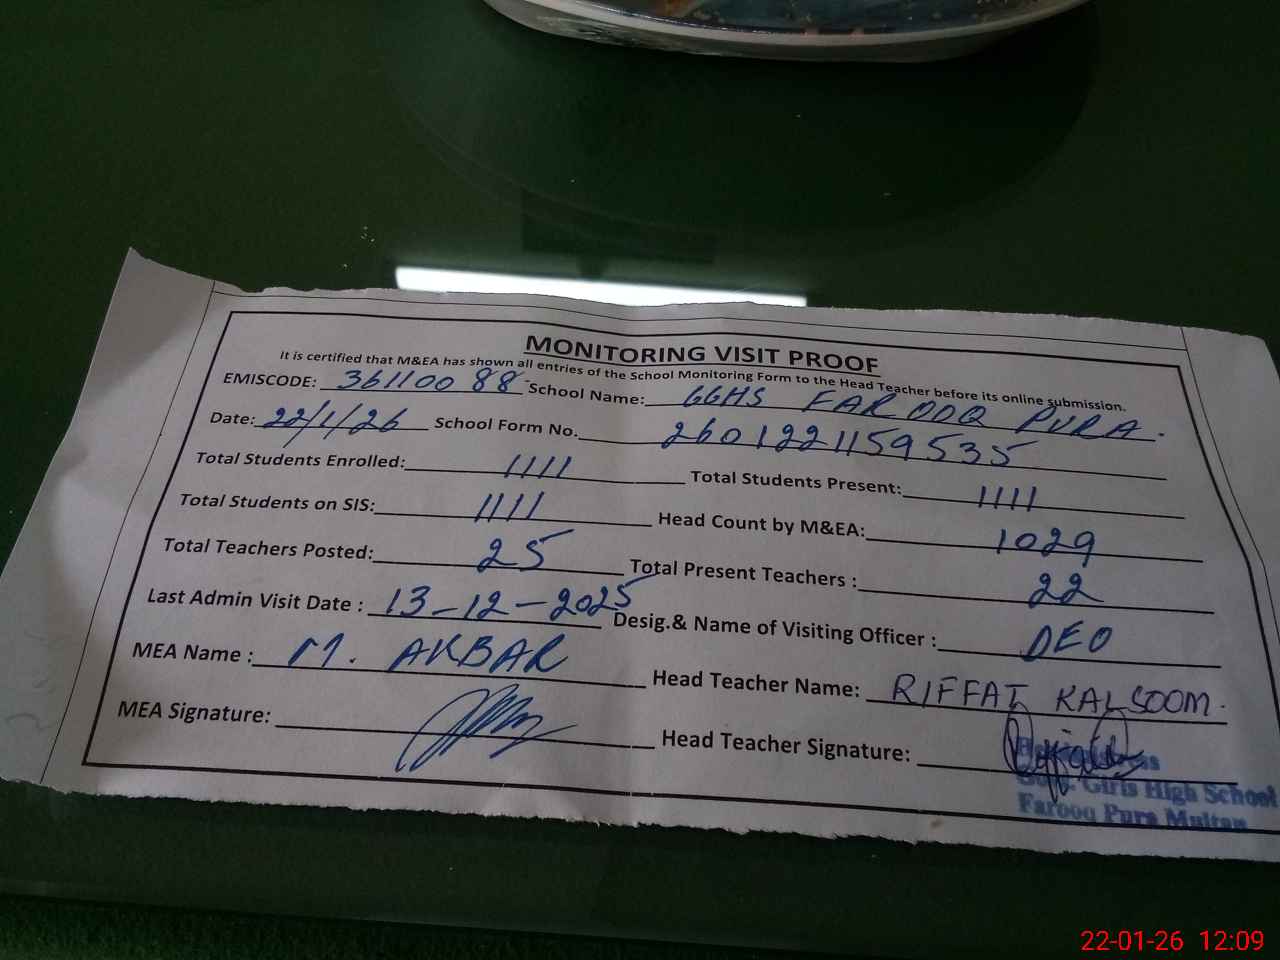 MONITORING VISIT PROOF
It is certified that M&EA has shown all entries of the School Monitoring Form to the Head Teacher before its online submission.
EMISCODE: 36110088 School Name: GGHS FAROOQ PURA.
Date: 22/1/26 School Form No. 2601221159535
Total Students Enrolled: 1111 Total Students Present: 1111
Total Students on SIS: 1111 Head Count by M&EA: 1029
Total Teachers Posted: 25 Total Present Teachers : 22
Last Admin Visit Date : 13-12-2025 Desig.& Name of Visiting Officer : DEO
MEA Name : M. AKBAR Head Teacher Name: RIFFAT KALSOOM.
MEA Signature: Head Teacher Signature:
Girls High School
Farooq Pura Multan
22-01-26 12:09